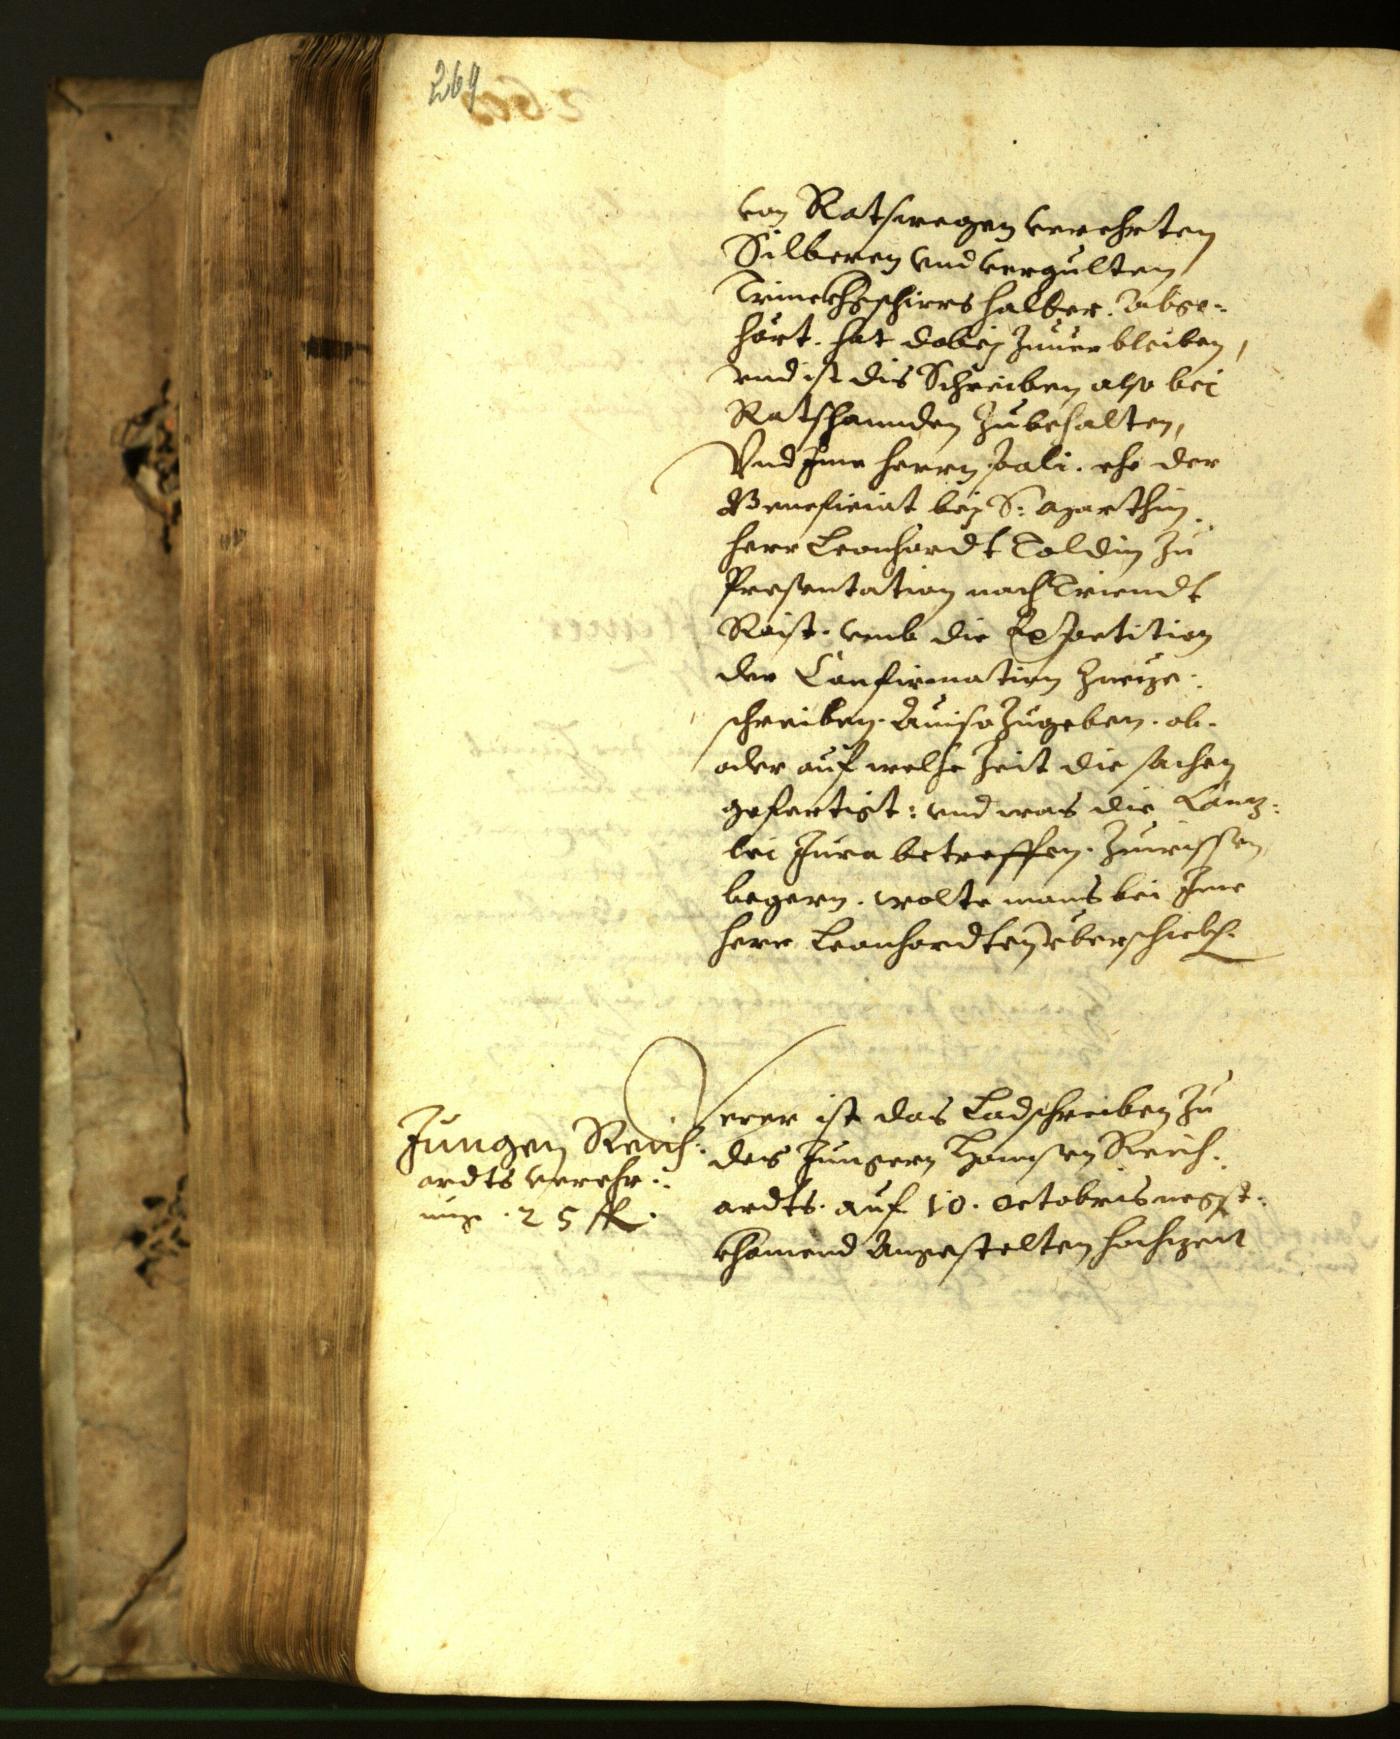 269
von Ratswegen verehrten
Silberen vnd vergulten
Trinckhgschirrs halber. abge-
hört. hat dabej zuuerbleiben,
vnd ist dis Schreiben also bei
Ratshannden zubehalten,
Vnd Ime herrn ehe der
Beneficiat bej S:
herr Leonhardt Toldin zu
Presentation nach Triendt
Raist. vmb die Expetition
der Confirmation zueze:
schreiben. Auiso zugeben. ob.
oder auf welche Zeit die sachen
gefertigt: vnd was die Canz:
lei Jura betreffen. zuwissen
begern. wolte mans bei Ime
herr Leonhardten vberschickh.
Jungen Reich:
ardts verehr:
ung. 25 fl.
Verer ist das Ladschreiben zu
des Jungern Hannsen Reich:
ardts. auf 10. Octobris negst:
khomend Angestelten hochzeit